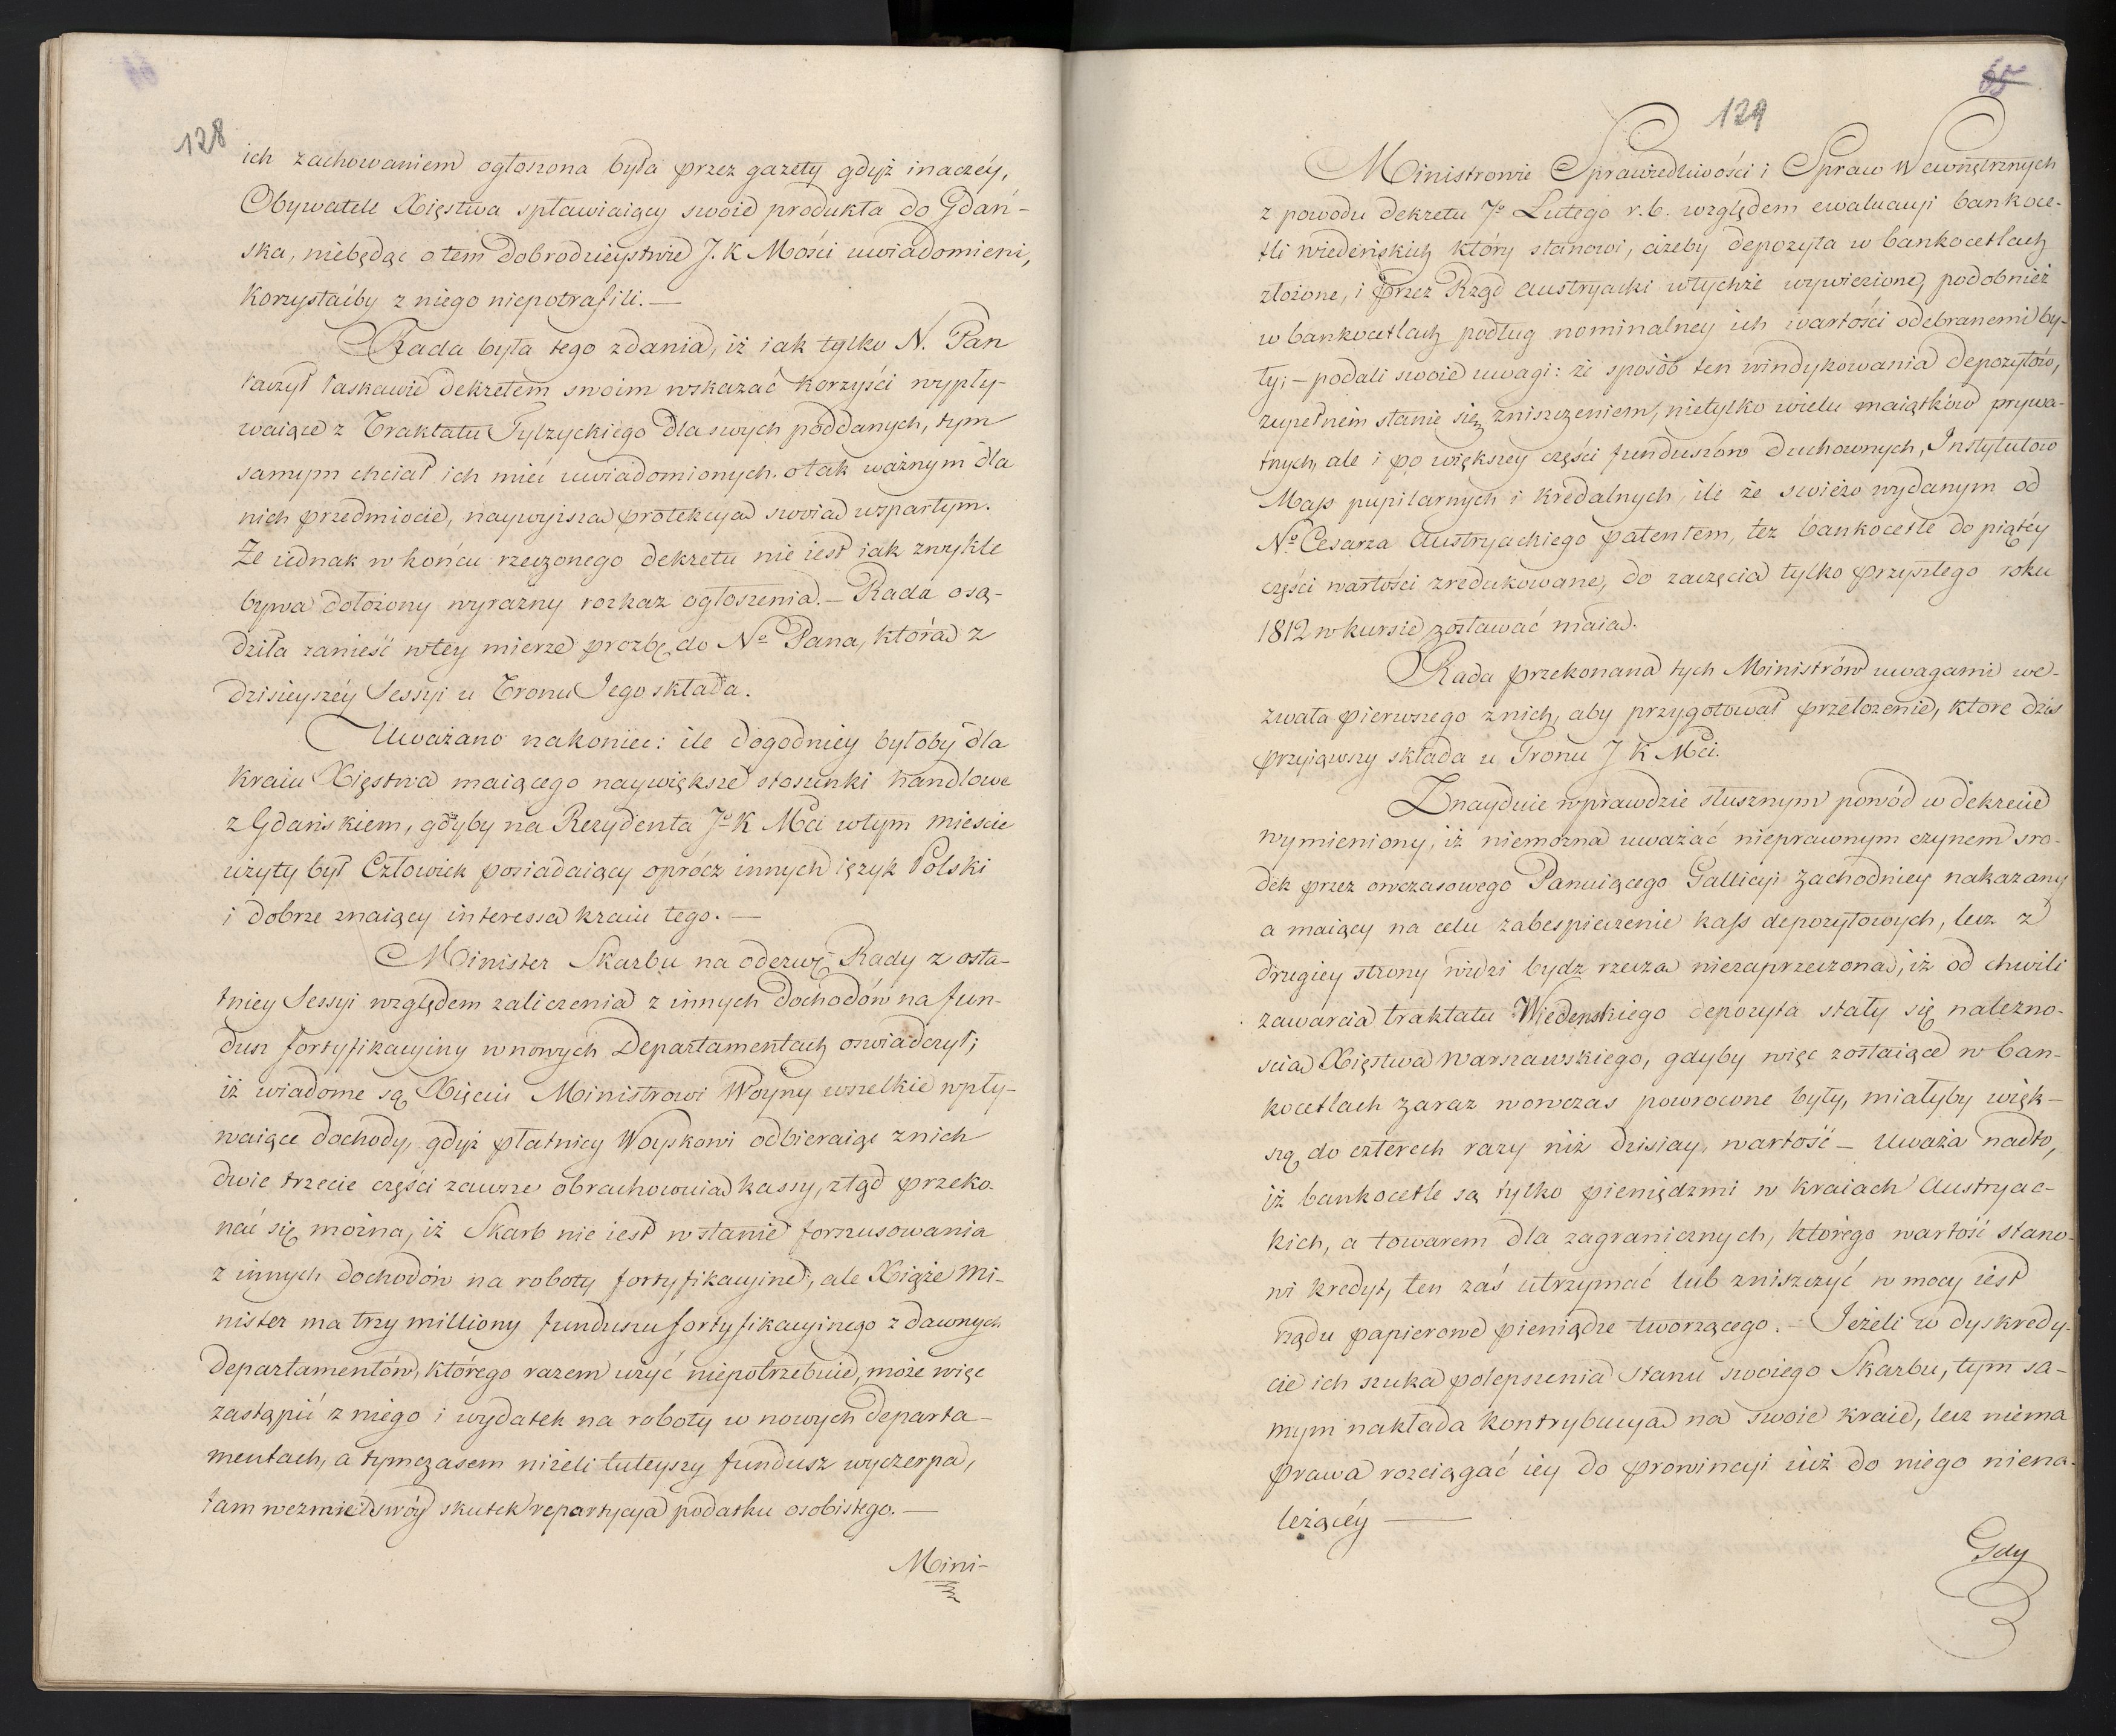 128
ich zachowaniem ogłoszona była przez gazety gdyż inaczéy,
Obywatele Xięstwa spławiaiący swoie produkta do Gdań-
ska, niebędąc o tem dobrodzieystwie J. K Mości uwiadomieni,
korzystaćby z niego niepotrafili. —
Rada była tego zdania, iż iak tylko N. Pan
raczył łaskawie dekretem swoim wskazać korzyści wypły-
waiące z Traktatu Tylzyckiego dla swych poddanych, tym
samym chciał ich mieć uwiadomionych. o tak ważnym dla
nich przedmiocie, naywyższa protekcya swoia wspartym.
Ze iednak w końcu rzeczonego dekretu nie iest iak zwykle
bywa dołożony wyrazny rozkaz ogłoszenia. — Rada osą-
dziła zanieść w tey mierze prozbę do No Pana, która z
dzisieyszéy Sessyi u Tronu Jego składa.
Uważano nakoniec: ile dogodniey byłoby dla
kraiu Xięstwa maiącego naywiększe stosunki handlowe
z Gdańskiem, gdyby na Rezydenta Jo K Mci w tym miescie
użyty był Człowiek posiadaiący oprócz innych ięzyk Polski
i dobrze znaiący interessa kraiu tego. —
Minister Skarbu na odezwę Rady z osta-
tniey Sessyi względem zaliczenia z innych dochodów na fun-
dusz fortyfikacyiny w nowych Departamentach oswiadczył;
iż wiadome są Xięciu Ministrowi Woyny wszelkie wpły-
waiące dochody, gdyż płatnicy Woyskowi odbieraiąc z nich
dwie trzecie części zawsze obrachowuia kassy, ztąd przeko-
nać się można, iż Skarb nie iest w stanie forszusowania
z innych dochodów na roboty fortyfikacyine, ale Xiąże Mi-
nister ma trzy milliony funduszu fortyfikacyinego z dawnych
departamentów, którego razem użyć niepotrzebuie, może więc
zastąpić z niego i wydatek na roboty w nowych departa-
mentach, a tymczasem nizeli tuteyszy fundusz wyczerpa,
tam wezmie swóy skutek repartycya podatku osobistego. —
Mini-
65
129
Ministrowie Sprawiedliwości i Spraw Wewnętrznych
z powodu dekretu 7o Lutego r. b. względem ewaluacyi bankoce-
tli wiedeńskich który stanowi, ażeby depozyta w bankocetlach
złożone, i przez Rząd austryacki w tychże wywiezione, podobnież
w bankocetlach podług nominalney ich wartości odebranemi by-
ły; — podali swoie uwagi: że sposób ten windykowania depozytów,
zupełnem stanie się zniszczeniem, nietylko wielu maiątków prywa-
tnych, ale i po większey części funduszów duchownych, Instytutów
Mass pupilarnych i kredalnych, ile że swieżo wydanym od
No Cesarza Austryackiego patentem, tez bankocetle do piątéy
części wartości zredukowane, do zaczęcia tylko przyszłego roku
1812 w kursie zostawać maia.
Rada przekonana tych Ministrów uwagami we-
zwała pierwszego z nich, aby przygotował przełożenie, które dziś
przyiąwszy składa u Tronu J K Mci.
Znayduie wprawdzie słusznym powód w dekrecie
wymieniony, iż niemożna uważać nieprawnym czynem sro-
dek przez owczasowego Panuiącego Gallicyi Zachodniey nakazany
a maiący na celu zabespieczenie kass depozytowych, lecz z
drugiey strony widzi bydz rzecza niezaprzeczona, iż od chwili
zawarcia traktatu Wiedenskiego depozyta stały się należno-
scia Xięstwa Warszawskiego, gdyby więc zostaiące w ban-
kocetlach zaraz wowczas powrocone były, miałyby więk-
szą do czterech razy niż dzisiay, wartość — Uważa nadto,
iż bankocetle są tylko pieniędzmi w kraiach Austryac-
kich, a towarem dla zagranicznych, którego wartość stano-
wi kredyt, ten zaś utrzymać lub zniszczyć w mocy iest
rządu papierowe pieniądze tworzącego. — Jeżeli w dyskredy-
cie ich szuka polepszenia stanu swoiego Skarbu, tym sa-
mym nakłada kontrybucya na swoie kraie, lecz niema
prawa rozciągać iey do prowincyi iuż do niego niena-
leżącéy —
Gdy